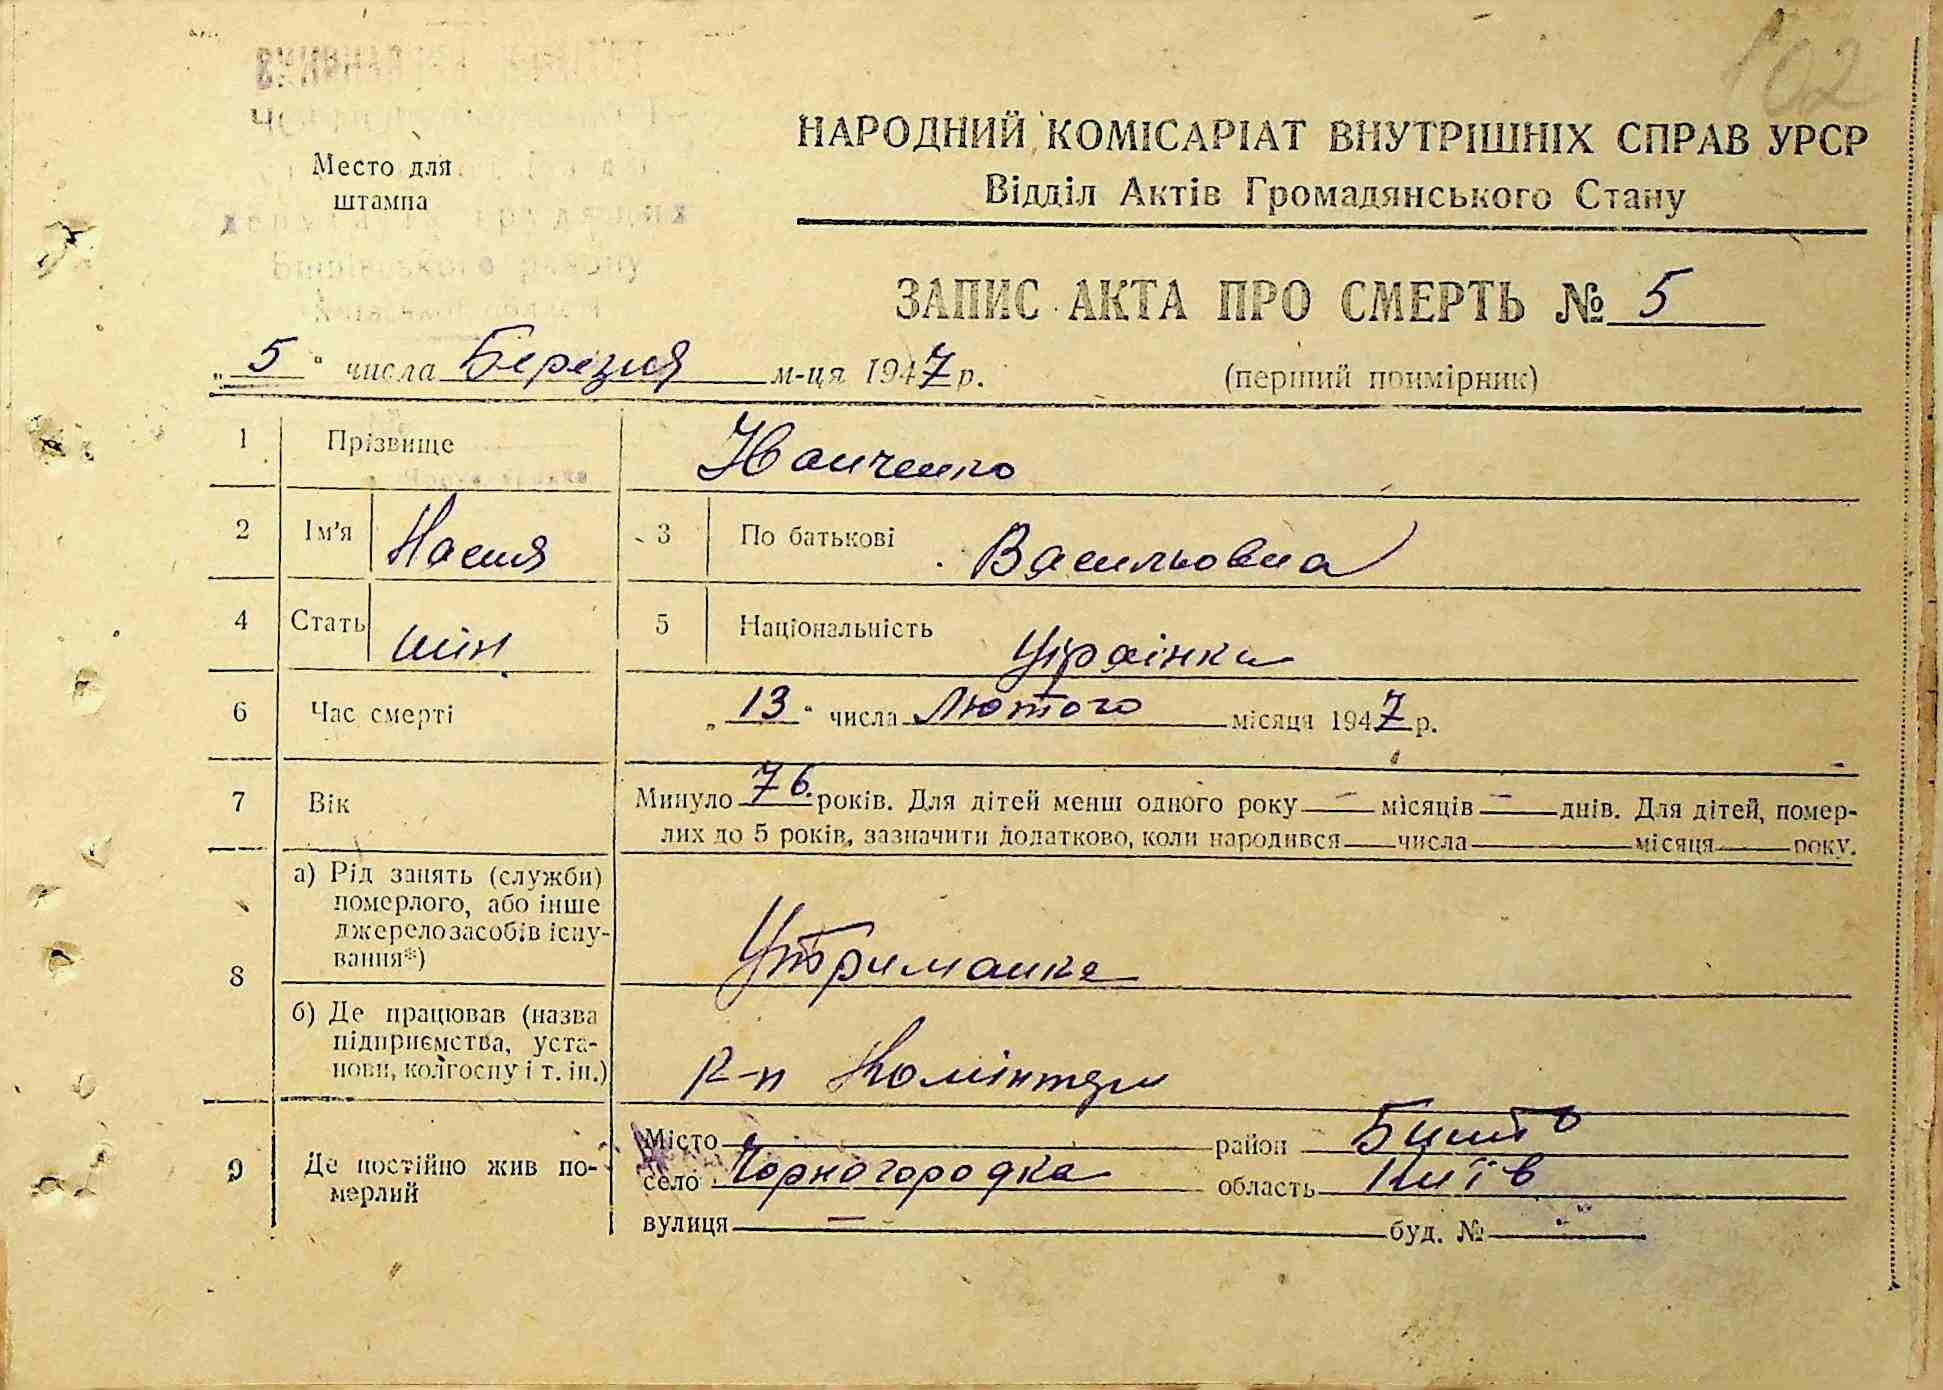 102
НАРОДНИЙ КОМІСАРІАТ ВНУТРІШНІХ СПРАВ УРСР
Відділ Актів Громадянського Стану
Место для
штампа
Бишівського району
ЗАПИС АКТА ПРО СМЕРТЬ № 5
„5“ числа Березня м-ця 1947 р. (перший примірник)
1 Прізвище Іванченко
2 Ім'я Насия 3 По батькові Васильовна
4 Стать жін 5 Національність Українка
6 Час смерті „13“ числа Лютого місяця 1947 р.
7 Вік Минуло 76 років. Для дітей менш одного року — місяців — днів. Для дітей, помер-
лих до 5 років, зазначити додатково, коли народився числа місяця року.
8 а) Рід занять (служби)
померлого, або інше
джерело засобів існу-
вання*)
Утриманка
б) Де працював (назва
підприємства, уста-
нови, колгоспу і т. ін.)
к-п Комінтерн
9 Де постійно жив по-
мерлий
Місто район Бишів
село Чорногородка область Київ
вулиця — буд. № „